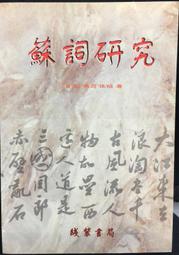 蘇詞研究
著
大江東去
浪淘盡千
古風流人
物故壘西
邊人道是
三國周郎
赤壁亂石
綫裝書局